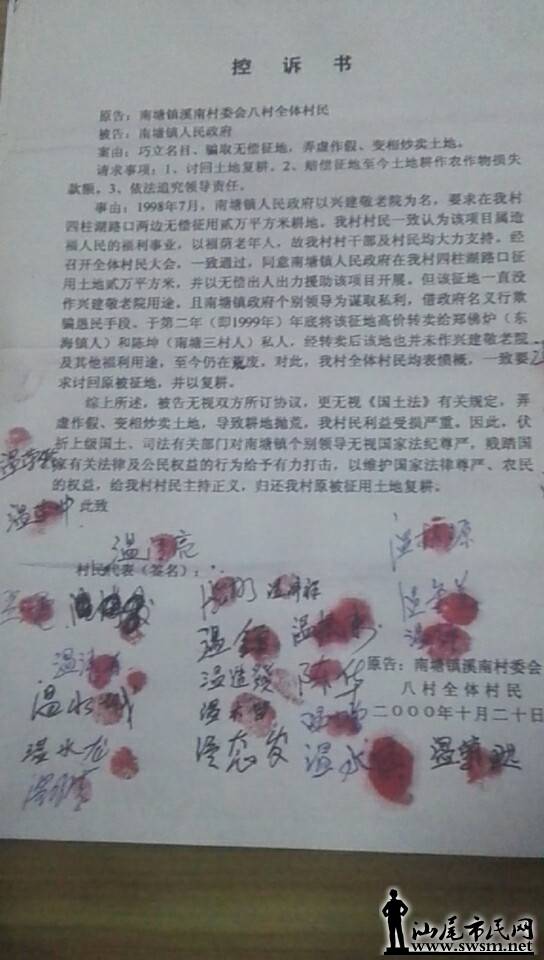 控诉书
原告：南塘镇溪南村委会八村全体村民
被告：南塘镇人民政府
案由：巧立名目、骗取无偿征地，弄虚作假、变相炒卖土地。
请求事项：1、讨回土地复耕。2、赔偿征地至今土地耕作农作物损失
款额。3、依法追究领导责任。
事由：1998年7月，南塘镇人民政府以兴建敬老院为名，要求在我村
四柱湖路口两边无偿征用贰万平方米耕地。我村村民一致认为该项目属造
福人民的福利事业，以福荫老年人，故我村村干部及村民均大力支持。经
召开全体村民大会，一致通过，同意南塘镇人民政府在我村四柱湖路口征
用土地贰万平方米，并以无偿出人出力援助该项目开展。但该征地一直没
作兴建敬老院用途。且南塘镇政府个别领导为谋取私利，借政府名义行欺
骗愚民手段。于第二年（即1999年）年底将该征地高价转卖给郑佛炉（东
海镇人）和陈坤（南塘三村人）私人，经转卖后该地也并未作兴建敬老院
及其他福利用途，至今仍在荒废。对此，我村全体村民均表愤慨，一致要
求讨回原被征地，并以复耕。
综上所述，被告无视双方所订协议，更无视《国土法》有关规定，弄
虚作假、变土炒卖土地，导致耕地抛荒，我村民利益受损严重。因此，伏
祈上级国土、司法有关部门对南塘镇个别领导无视国家法纪尊严，贱踏国
家有关法律及公民权益的行为给予有力打击，以维护国家法律尊严、农民
的权益，给我村村民主持正义，归还我村原被征用土地复耕。
此致
村民代表（签名）：
温水龙
陈华
温水
原告：南塘镇溪南村委会
八村全体村民
二000年十月二十日
汕尾市民网
www.swsm.net